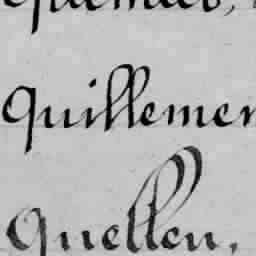 Quillemen
Quellen,